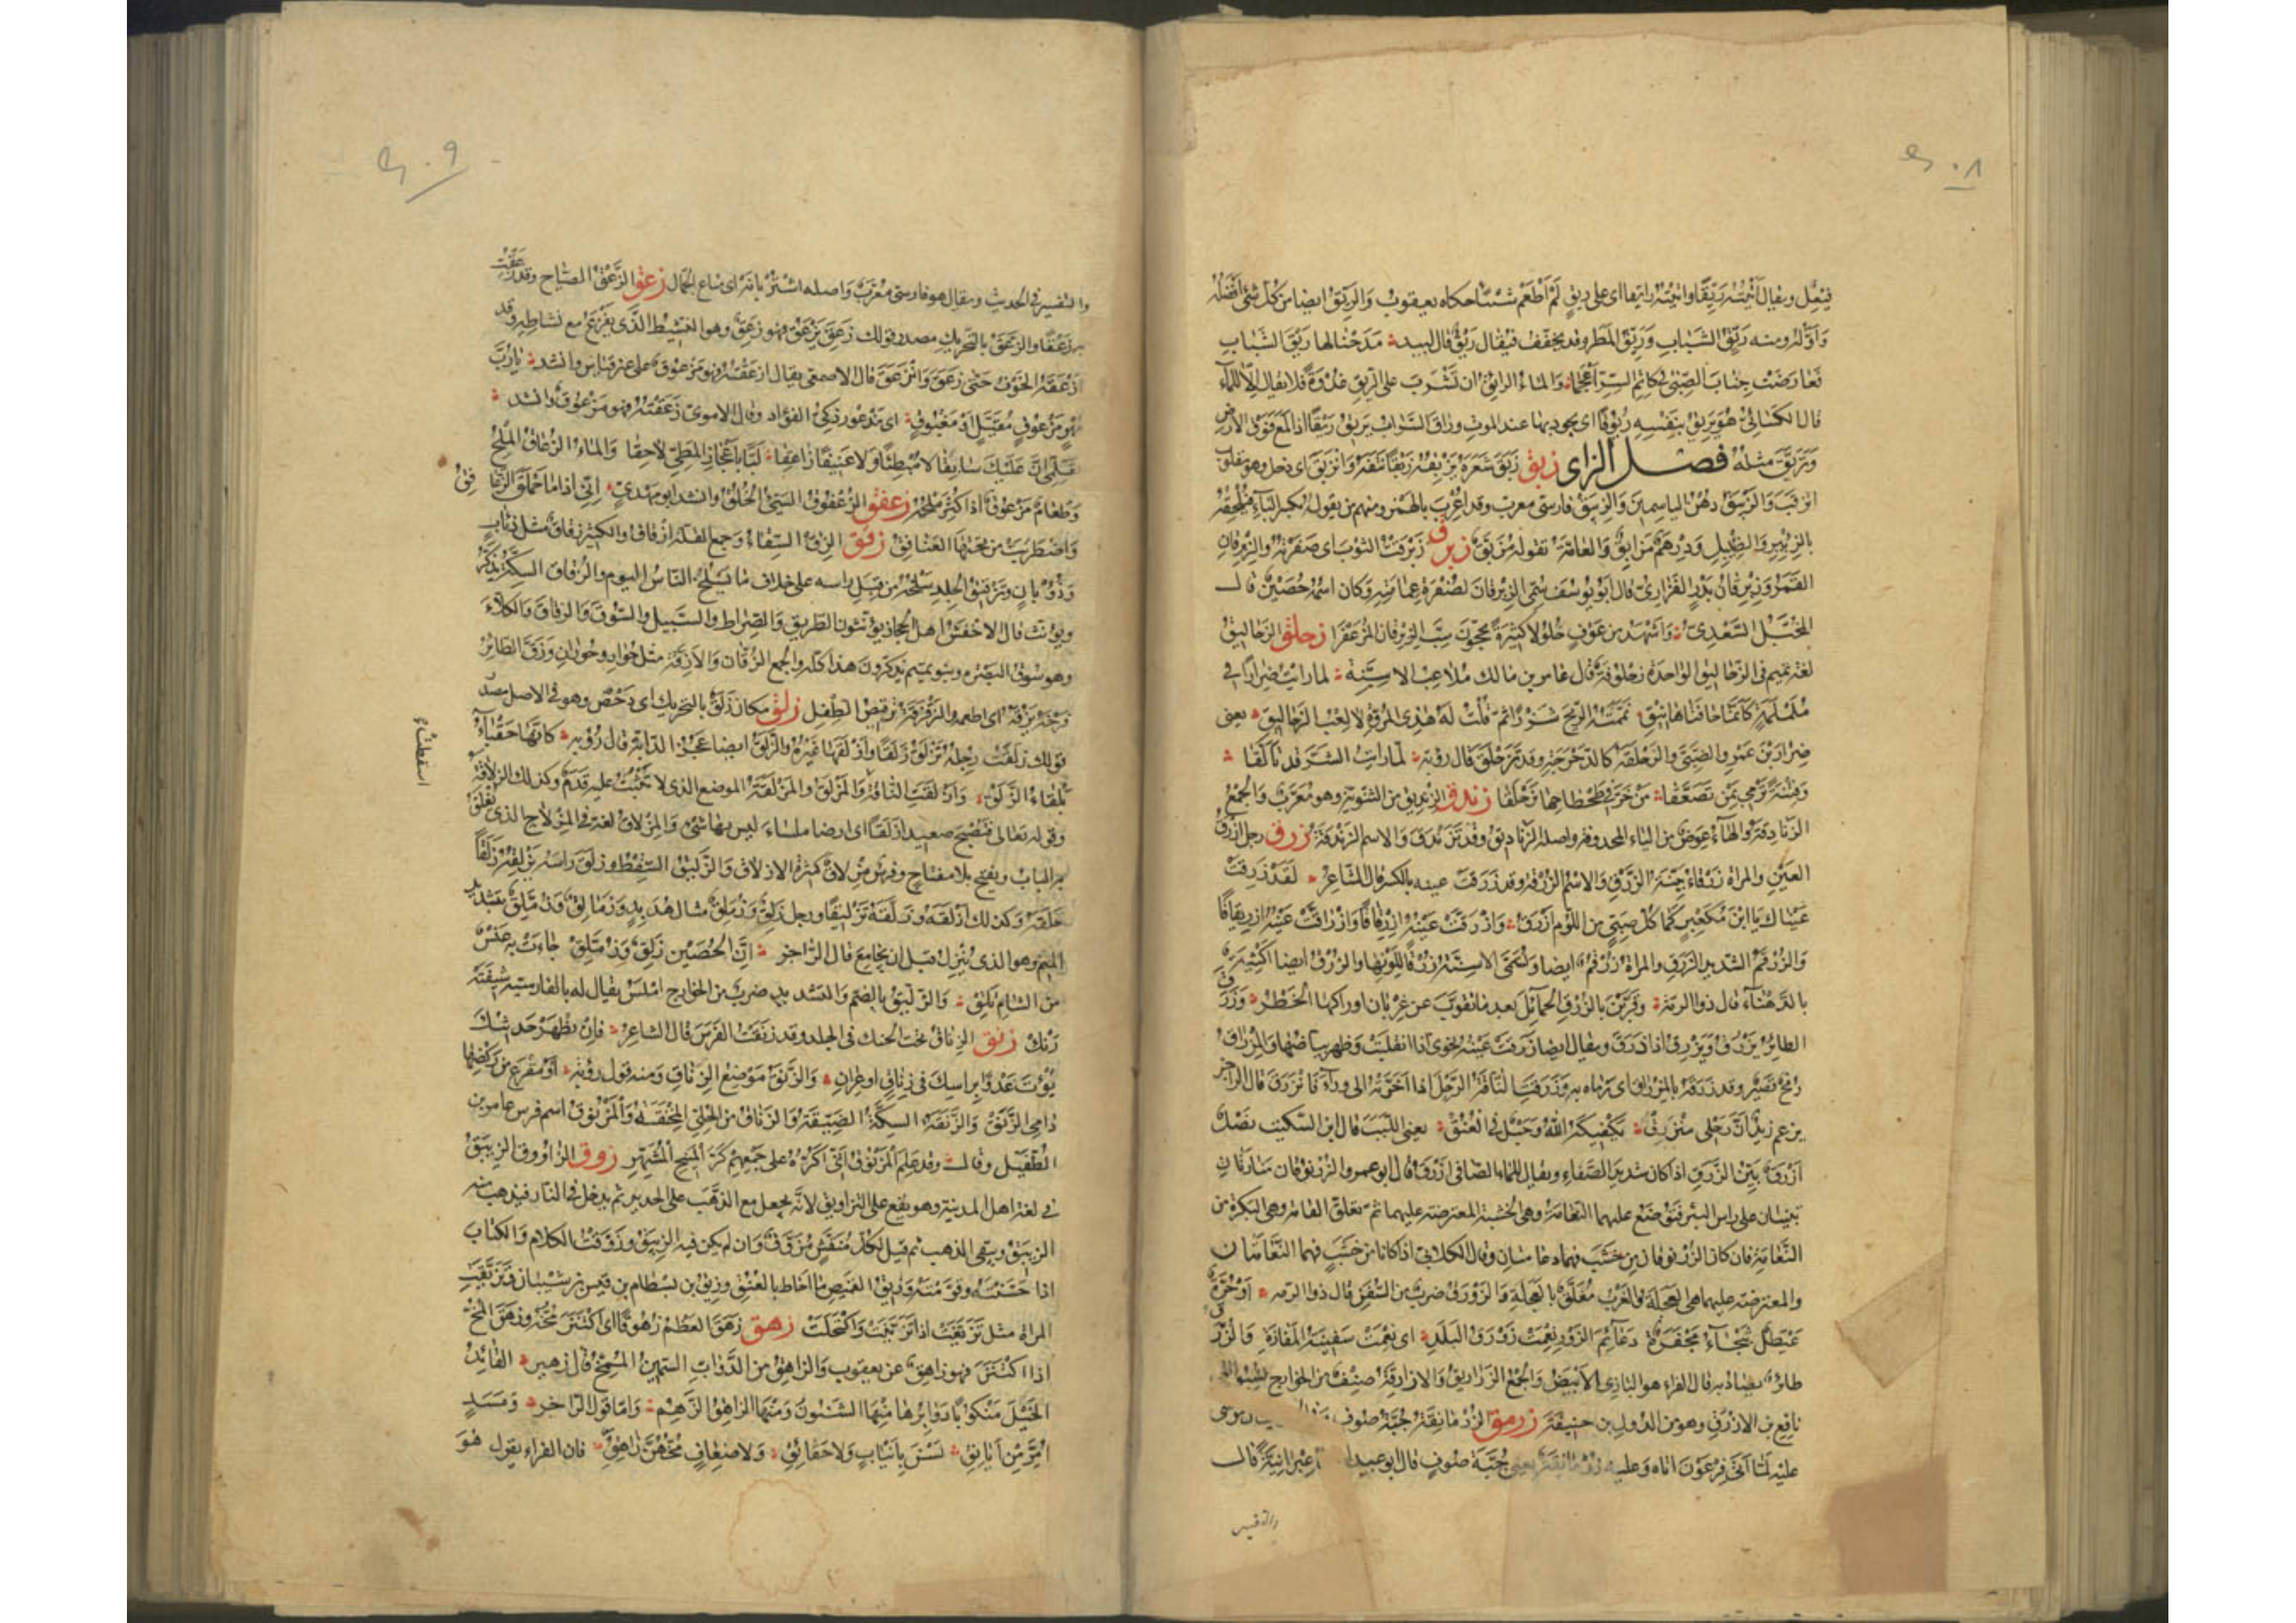 ٤٠٨
فيعل ويقال اتيته ريقا واتيته رائقا اى على ريق لم اطعم شيئا حكاه يعقوب والريق ايضا من كل شئ افضله
واوله ومنه ريق الشباب وريق المطر وقد يخفف فيقال ريق قال لبيد مدحنا لها ريق الشباب
فعارضت جناب الصبى فى كاتم السر اعجما والماء الرائق ان تشرب على الريق غدوة فلا يقال الا للماء
قال الكسائى هو يريق بنفسه ريوقا اى يجود بها عند الموت وراق السراب يريق ريقا اذا لمع فوق الارض
وتريق مثله فصل الزاى زبق زبق شعره يزبقه زبقا نتفه وانزبق اى دخل وهو مقلوب
انزقب والزنبق دهن الياسمين والزئبق فارسى معرب وقد اعرب بالهمز ومنهم من يقوله بكسر الباء فيلحقه
بالزئبر والضئبل ودرهم مزأبق والعامة تقوله مزبق زبرق زبرقت الثوب اى صفرته والزبرقان
القمر وزبرقان بن بدر الفزارى قال ابو يوسف سمى الزبرقان لصفرة عمامته وكان اسمه حصين قال
المخبل السعدى واشهد من عوف حلولا كثيرة يحجون سب الزبرقان المزعفرا زحلق الزحاليق
لغة تميم فى الزحاليف الواحدة زحلوقة قال عامر بن مالك ملاعب الاسنة لما رايت ضرارا فى
ململمة كانما حافتاها نيق يممته الرمح شزرا ثم قلت له هذى المروة لا لعب الزحاليق يعنى
ضرار بن عمرو الضبى والزحلقة كالدحرجة وقد تزحلق قال رؤبة لما رايت الشر قد تألقا
وفتنة ترمى بمن تصعقا من خر فى طحطاحها تزحلقا زندق الزنديق من الثنوية وهو معرب والجمع
الزنادقة والهاء عوض من الياء المحذوفة واصله الزناديق وقد تزندق والاسم الزندقة زرق رجل ازرق
العين والمراة زرقاء بينة الزرق والاسم الزرقة وقد زرقت عينه بالكسر قال الشاعر لقد زرقت
عيناك يا ابن مكعبر كما كل ضبى من اللؤم ازرق وازرقت عينه ازرقاقا وازراقت عينه ازريقاقا
والزرقم الشديد الزرق والمراة زرقم ايضا وتسمى الاسنة زرقا للونها والزرق ايضا اكثبة
بالدهناء قال ذو الرمة وقربن بالزرق الحمائل بعد ما تقوب عن غربان اوراكها الخطر وزرق
الطائر يزرق ويزرق اذا ذرق ويقال ايضا زرقت عينه نحوى اذا انقلبت وظهر بياضها والمزراق
رمح قصير وقد زرقه بالمزراق اى رماه به وزرقت الناقة الرحل اذا اخرته الى وراء فانزرق قال الراجز
يزعم زيد ان رحلى منزرق يكفيكه الله وحبل فى العنق يعنى اللبب قال ابن السكيت نصل
ازرق بين الزرق اذا كان شديد الصفاء ويقال للماء الصافى ازرق قال ابو عمرو الزرنوقان منارتان
تبنيان على راس البئر فتوضع عليهما النعامة وهى الخشبة المعترضة عليهما ثم تعلق القامة وهى البكرة من
النعامة فان كان الزرنوقان من خشب فهما دعامتان وقال الكلابى اذا كانا من خشب فهما النعامتان
والمعترضة عليهما هى العجلة والغرب معلق بالعجلة والزورق ضرب من السفن قال ذو الرمة او حرة
عيطل ثبجاء مجفرة دعائم الزور نعمت زورق البلد اى نعمت سفينة المفازة والزرق
طائر يصاد به قال الفراء هو البازى الابيض والجمع الزراريق والازارقة صنف من الخوارج نسبوا الى
نافع بن الازرق وهو من الدول بن حنيفة زرمق الزرمانقة جبة صوف
عليه لما اتى فرعون اتاه وعليه زرمانقة يعنى جبة صوف قال ابو عبيد عبرانية قال
والتفسير
٤٠٩
والتفسير فى الحديث ويقال هو فارسى معرب واصله اشتربانه اى متاع الجمال زعق الزعق الصياح وقد زعقت
به زعقا والزعق بالتحريك مصدر قولك زعق يزعق فهو زعق وهو النشيط الذى يفزع مع نشاطه وقد
ازعقه الخوف حتى زعق وانزعق قال الاصمعى يقال ازعقته فهو مزعوق على غير قياس وانشد يا رب
مهر مزعوق مقيل او مغبوق اى مذعور ذكى الفؤاد وقال الاموى زعقته فهو مزعوق وانشد
تعلمى ان عليك سائقا لا مبطئا ولا عنيفا زاعقا لبا باعجاز المطى لاحقا والماء الزعاق الملح
وطعام مزعوق اذا اكثر ملحه زعفق الزعفوق السيئ الخلق وانشد ابو مهدى انى اذا ما حملق الزعافق
واضطربت من تحتها العنافق زقق الزق السقاء وجمع القلة ازقاق والكثير زقاق مثل ذئاب
وذؤبان وتزقيق الجلد سلخه من قبل راسه على خلاف ما يسلخ الناس اليوم والزقاق السكة يذكر
ويؤنث قال الاخفش اهل الحجاز يؤنثون الطريق والصراط والسبيل والسوق والزقاق والكلاء
وهو سوق البصرة وبنو تميم يذكرون هذا كله والجمع الزقان والازقة مثل حوار وحوران وزق الطائر
فرخه يزقه اى اطعمه والزقزقة ترقيص الطفل زلق مكان زلق بالتحريك اى دحض وهو فى الاصل مصدر
قولك زلقت رجله تزلق زلقا وازلقها غيره والزلق ايضا عجز الدابة قال رؤبة كانها حقباء
بلقاء الزلق وازلقت الناقة والمزلق والمزلقة الموضع الذى لا يثبت عليه قدم وكذلك الزلاقة
وقوله تعالى فتصبح صعيدا زلقا اى ارضا ملساء ليس بها شئ والمزلاق لغة فى المزلاج الذى يغلق
به الباب ويفتح بلا مفتاح وفرس مزلاق كثيرة الازلاق والزليق السقط وزلق راسه يزلقه زلقا
حلقه وكذلك ازلقه وزلقه تزليقا ورجل زلق وزملق مثال هدبد وزمالق وزملق بتشديد
الميم وهو الذى ينزل قبل ان يجامع قال الراجز ان الحصين زلق وزملق جاءت به عنس
من الشام تلق والزليق بالضم والتشديد ضرب من الخوخ املس يقال له بالفارسية شيفته
رنك زنق الزناق تحت الحنك فى الجلد وقد زنقت الفرس قال الشاعر فان يظهر حديثك
يؤت عدوا براسك فى زناق او عران والزنق موضع الزناق ومنه قول رؤبة او مقرع من ركضها
دامى الزنق والزنقة السكة الضيقة والزناق من الحلى المخنقة والمزنوق اسم فرس عامر بن
الطفيل وقال وقد علم المزنوق انى اكره على جمعهم كر المنيح المشهر زوق الزاووق الزيبق
فى لغة اهل المدينة وهو يقع على التزاويق لانه يجعل مع الذهب على الحديد ثم يدخل فى النار فيذهب منه
الزيبق ويبقى الذهب ثم قيل لكل منقش مزوق وان لم يكن فيه الزيبق وزوقت الكلام والكتاب
اذا حسنته وقومته وزيق القميص ما احاط بالعنق وزيق بن بسطام بن قيس من شيبان وتزيقت
المراة مثل تزيغت اذا تزينت واكتحلت زهق زهق العظم زهوقا اى اكتنز مخه وزهق المخ
اذا اكتنز فهو زاهق عن يعقوب والزاهق من الدواب السمين الممخ قال زهير القائد
الخيل منكوبا دوابرها منها الشنون ومنها الزاهق الزهم واما قول الراجز ومسد
امر من ايانق لسن بانياب ولا حقائق ولا ضعاف مخهن زاهق فان الفراء يقول هو